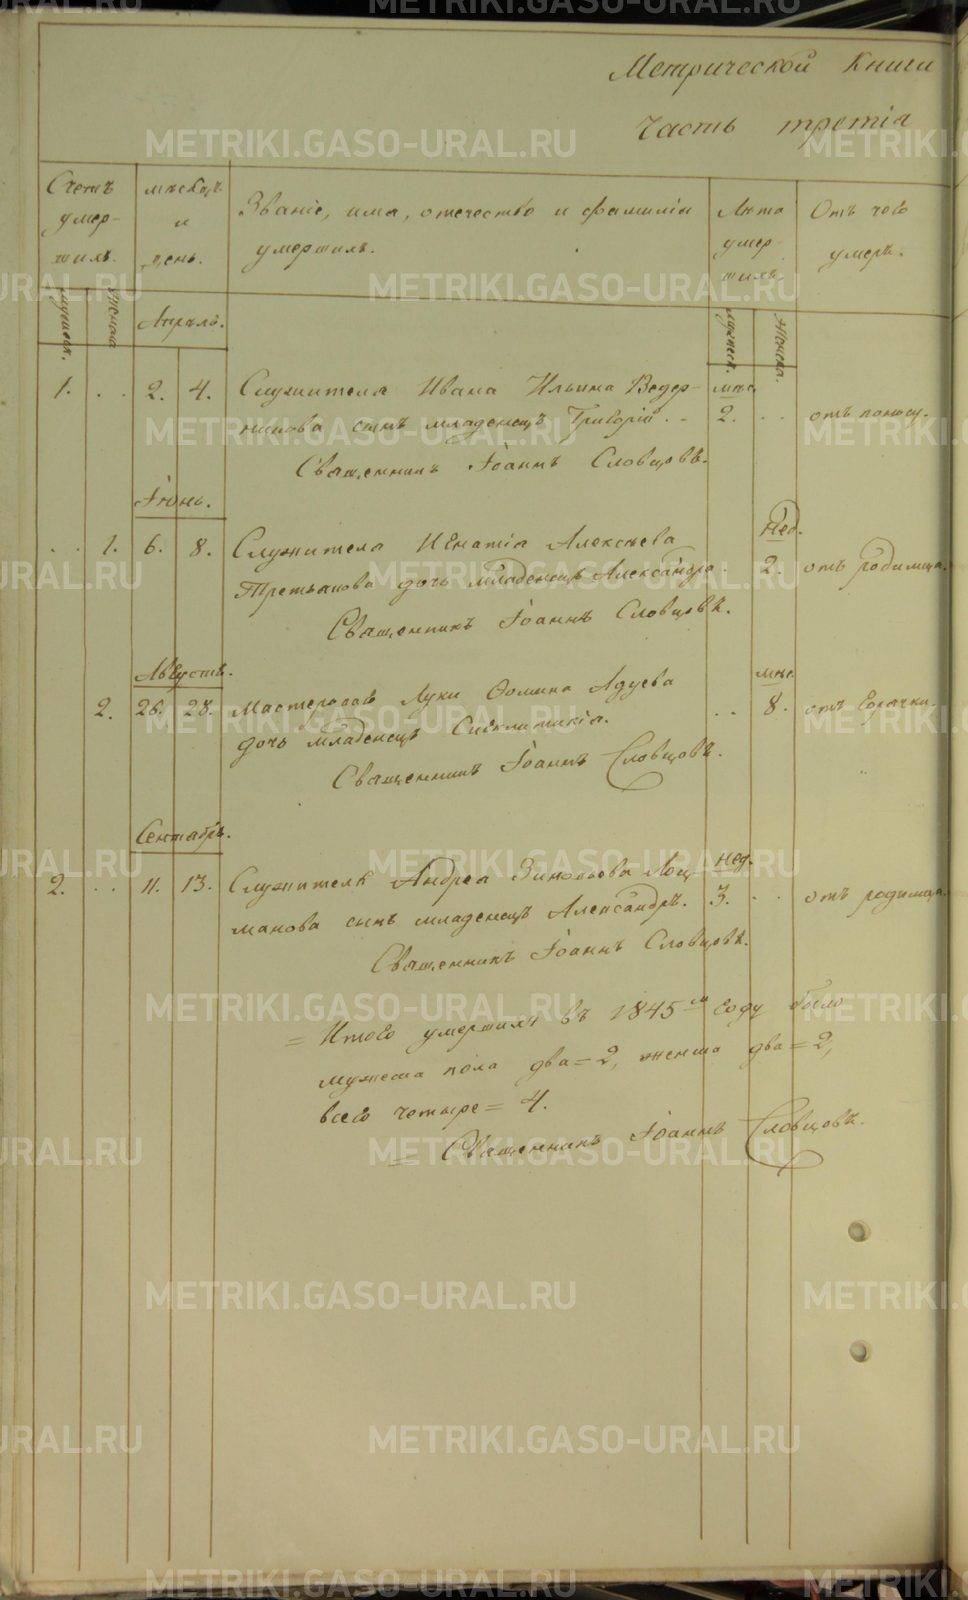 Метрической Книги
Часть третія
Счетъ умер-шихъ.
мѣсяцъ и день.
Званіе, имя, отечество и фамилія умершихъ.
Лѣта умер-шихъ.
Отъ чего умеръ.
мужеск.
Женска
Апрѣль.
мужеск.
Женска.
1. . . 2. 4. Служителя Ивана Ильина Ведер- мѣс.
никова сынъ младенецъ Григорій. . . 2. . . отъ поносу.
Священникъ Іоаннъ Словцовъ.
Іюнь.
Нед.
. . 1. 6. 8. Служителя Игнатія Алексѣева
Третьякова дочь младенецъ Александра. 2. отъ родимца.
Священникъ Іоаннъ Словцовъ.
Августъ.
мѣс.
2. 26. 28. Мастероваго Луки Фомина Адуева . . 8. отъ Горячки.
дочь младенецъ Сигклитикія.
Священникъ Іоаннъ Словцовъ.
Сентябрь.
2. . . 11. 13. Служителя Андрея Зиновьева Лоц- нед.
манова сынъ младенецъ Александръ. 3. . . отъ родимца.
Священникъ Іоаннъ Словцовъ.
= Итого умершихъ въ 1845м году было
мужеска пола два = 2, женска два = 2,
всего четыре = 4.
= Священникъ Іоаннъ Словцовъ.
METRIKI.GASO-URAL.RU